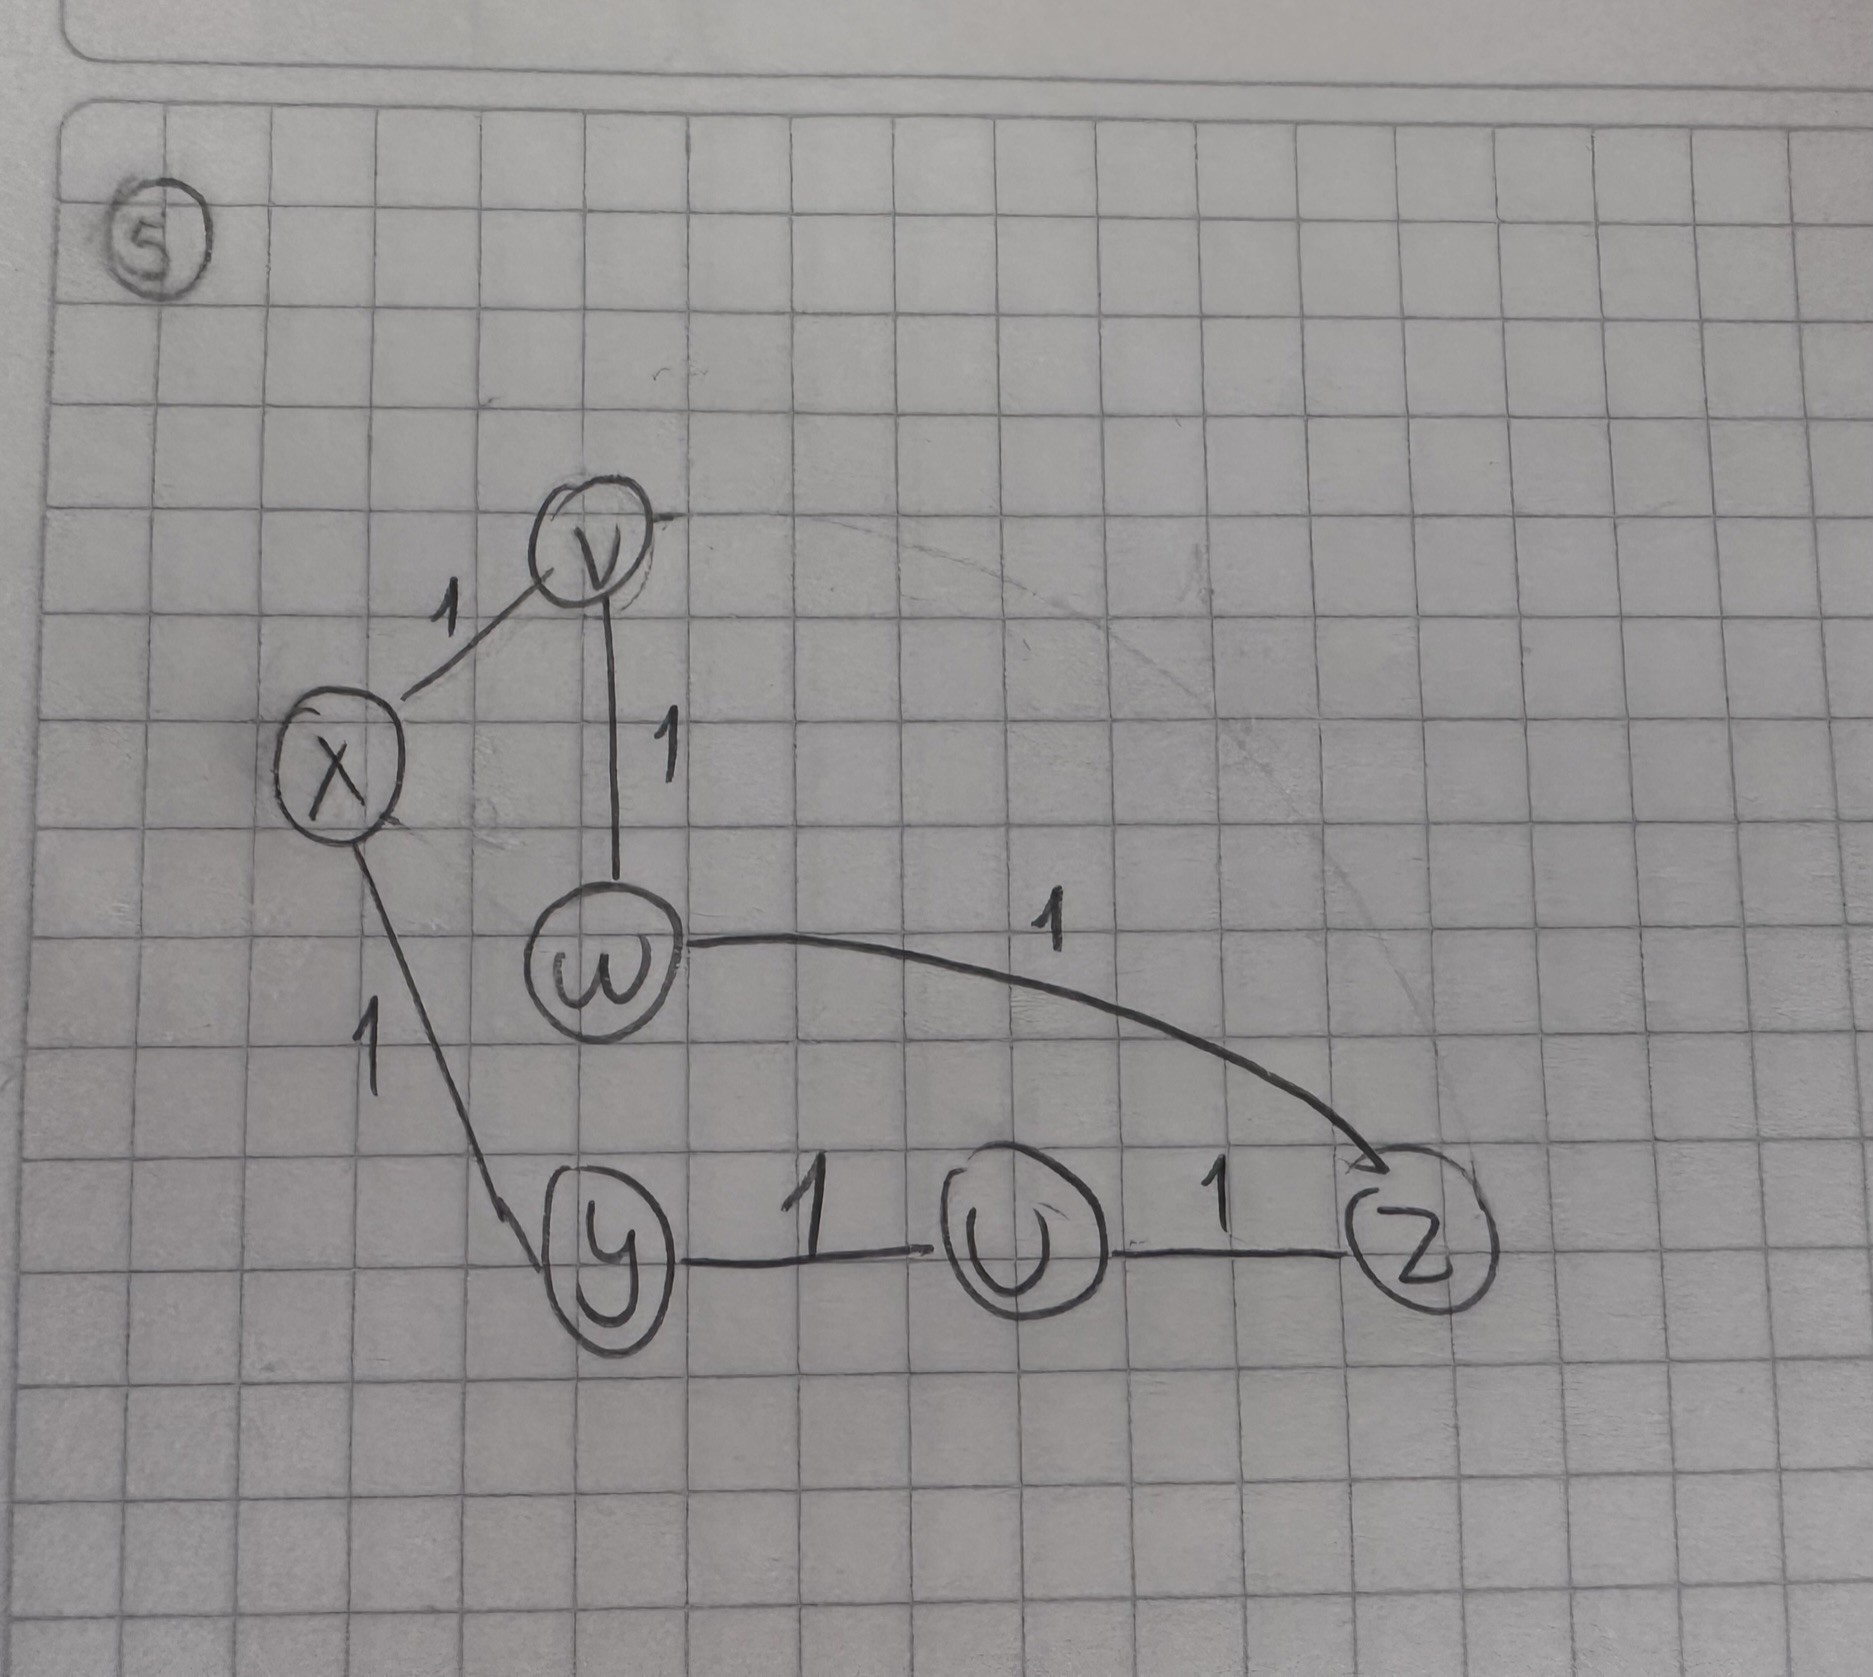 5
V
1
X
1
W
1
1
y
1
U
1
Z